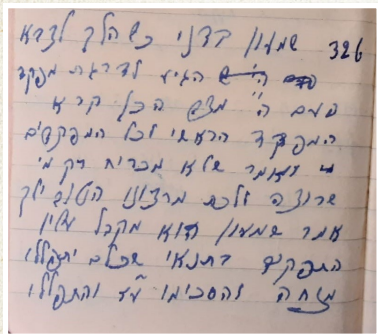 326 שמעון בדני כשהלך לצבא
הגיע לדרגת מפקד
פעם ה' מצם הכל קרא
המפקד הראשי לכל המפקדים
ואומר שלא מכריח רק מי
שרוצה ללכת מרצונו הטוב ילך
אמר שמעון הוא מקבל עליו
התפקיד בתנאי שכולם יתפללו
מנחה והסכימו עמו והתפללו